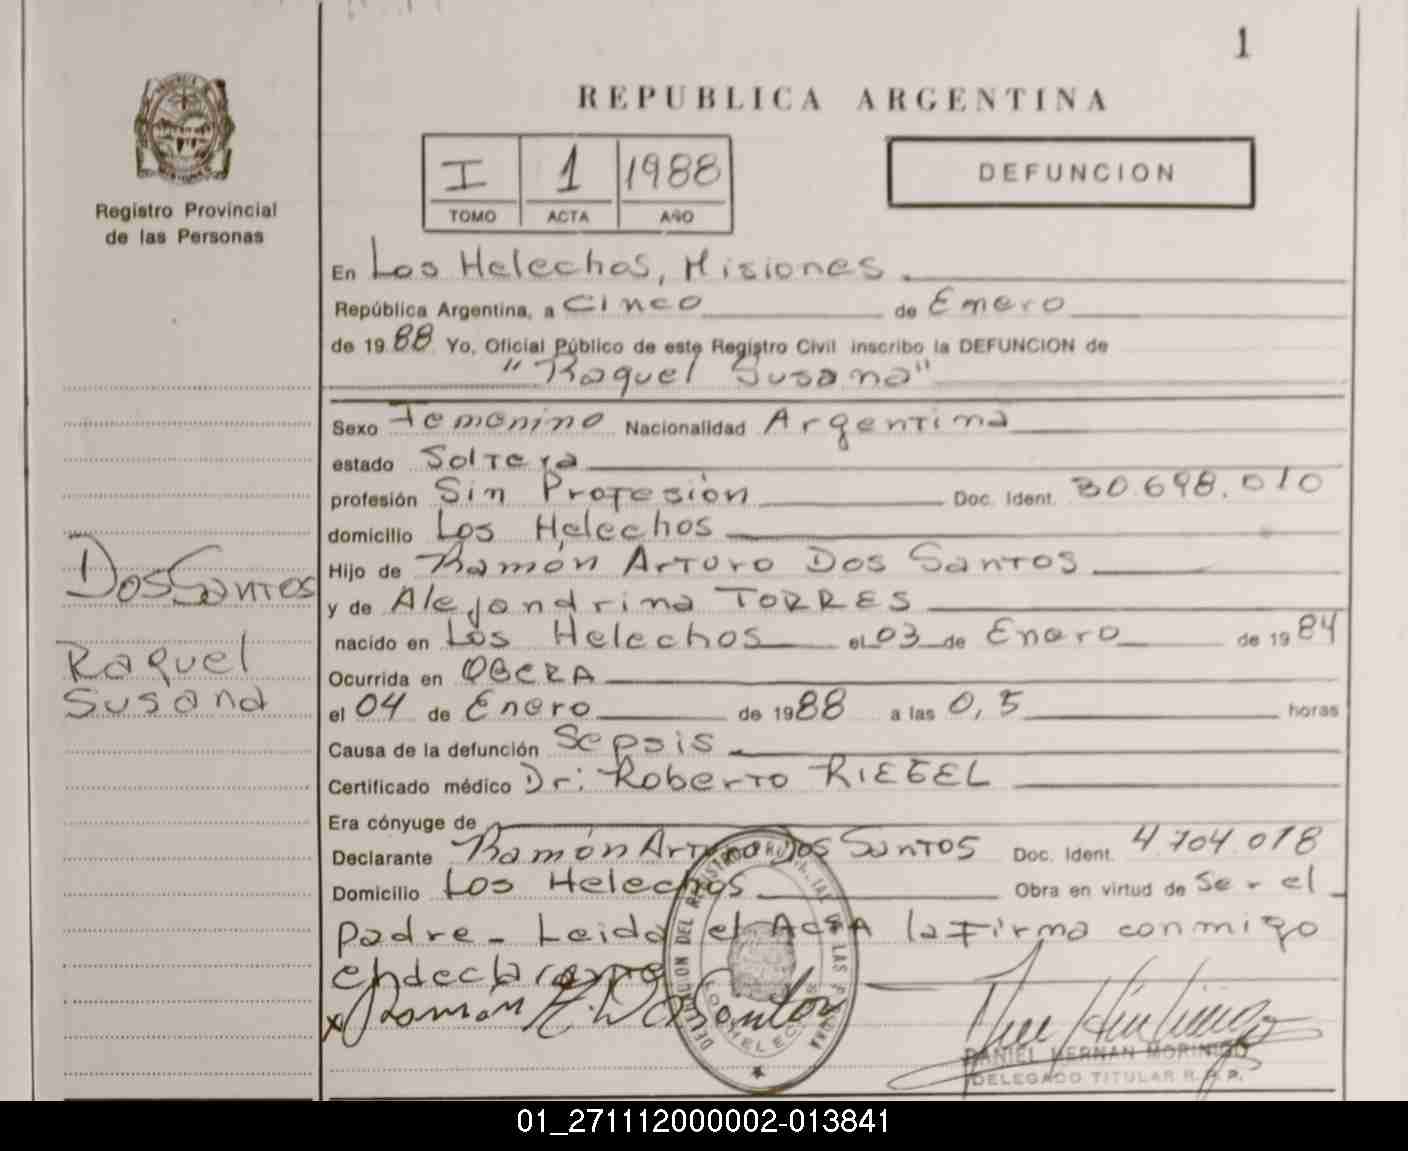 1
REPUBLICA ARGENTINA
Registro Provincial
de las Personas
I 1 1988
TOMO ACTA AÑO
DEFUNCION
En Los Helechos, Misiones
República Argentina, a Cinco de Enero
de 1988 Yo, Oficial Público de este Registro Civil inscribo la DEFUNCION de
"Raquel Susana"
Sexo Femenino Nacionalidad Argentina
estado Soltera
profesión Sin Profesión Doc. Ident. 30.698.010
domicilio Los Helechos
Dos Santos
Raquel
Susana
Hijo de Ramón Arturo Dos Santos
y de Alejandrina TORRES
nacido en Los Helechos el 03 de Enero de 1984
Ocurrida en OBERA
el 04 de Enero de 1988 a las 0,5 horas
Causa de la defunción Sepsis
Certificado médico Dr: Roberto RIEGEL
Era cónyuge de
Declarante Ramón Arturo Dos Santos Doc. Ident. 4.704.018
Domicilio Los Helechos Obra en virtud de Ser el
padre - Leida el ActA la Firma conmigo
el declarante
x Ramón Dos Santos
DELEGACION DEL REGISTRO LAS
LOS HELECHOS
DANIEL HERNAN MORINIGO
DELEGADO TITULAR R.P.P.
01_271112000002-013841